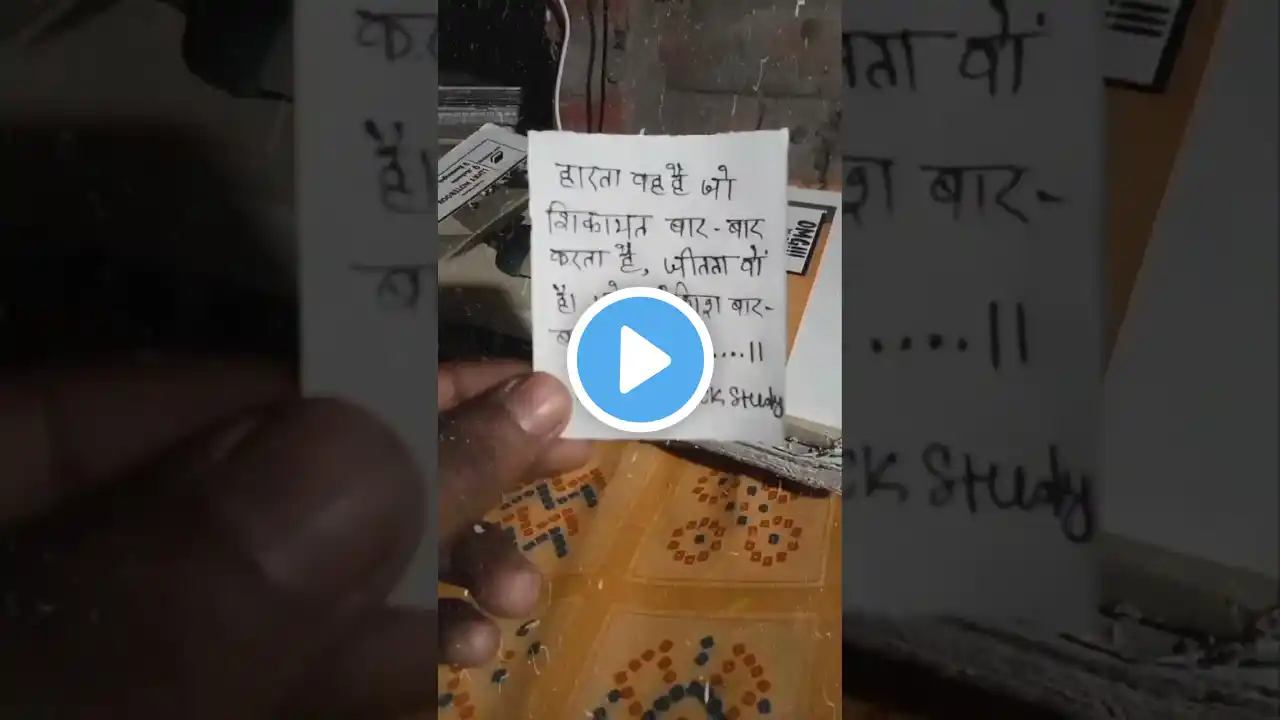 हारता वह है जो
शिकायत बार-बार
करता है, जीतता वों
है। बार-
....||
Study
OMG!!!